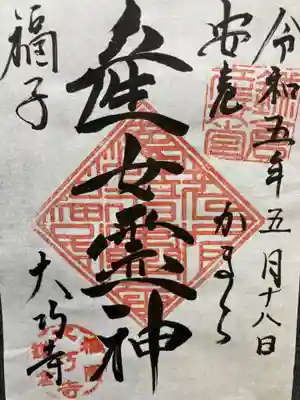 令和五年五月十八日
安産
かまくら
産女霊神
福子
大巧寺